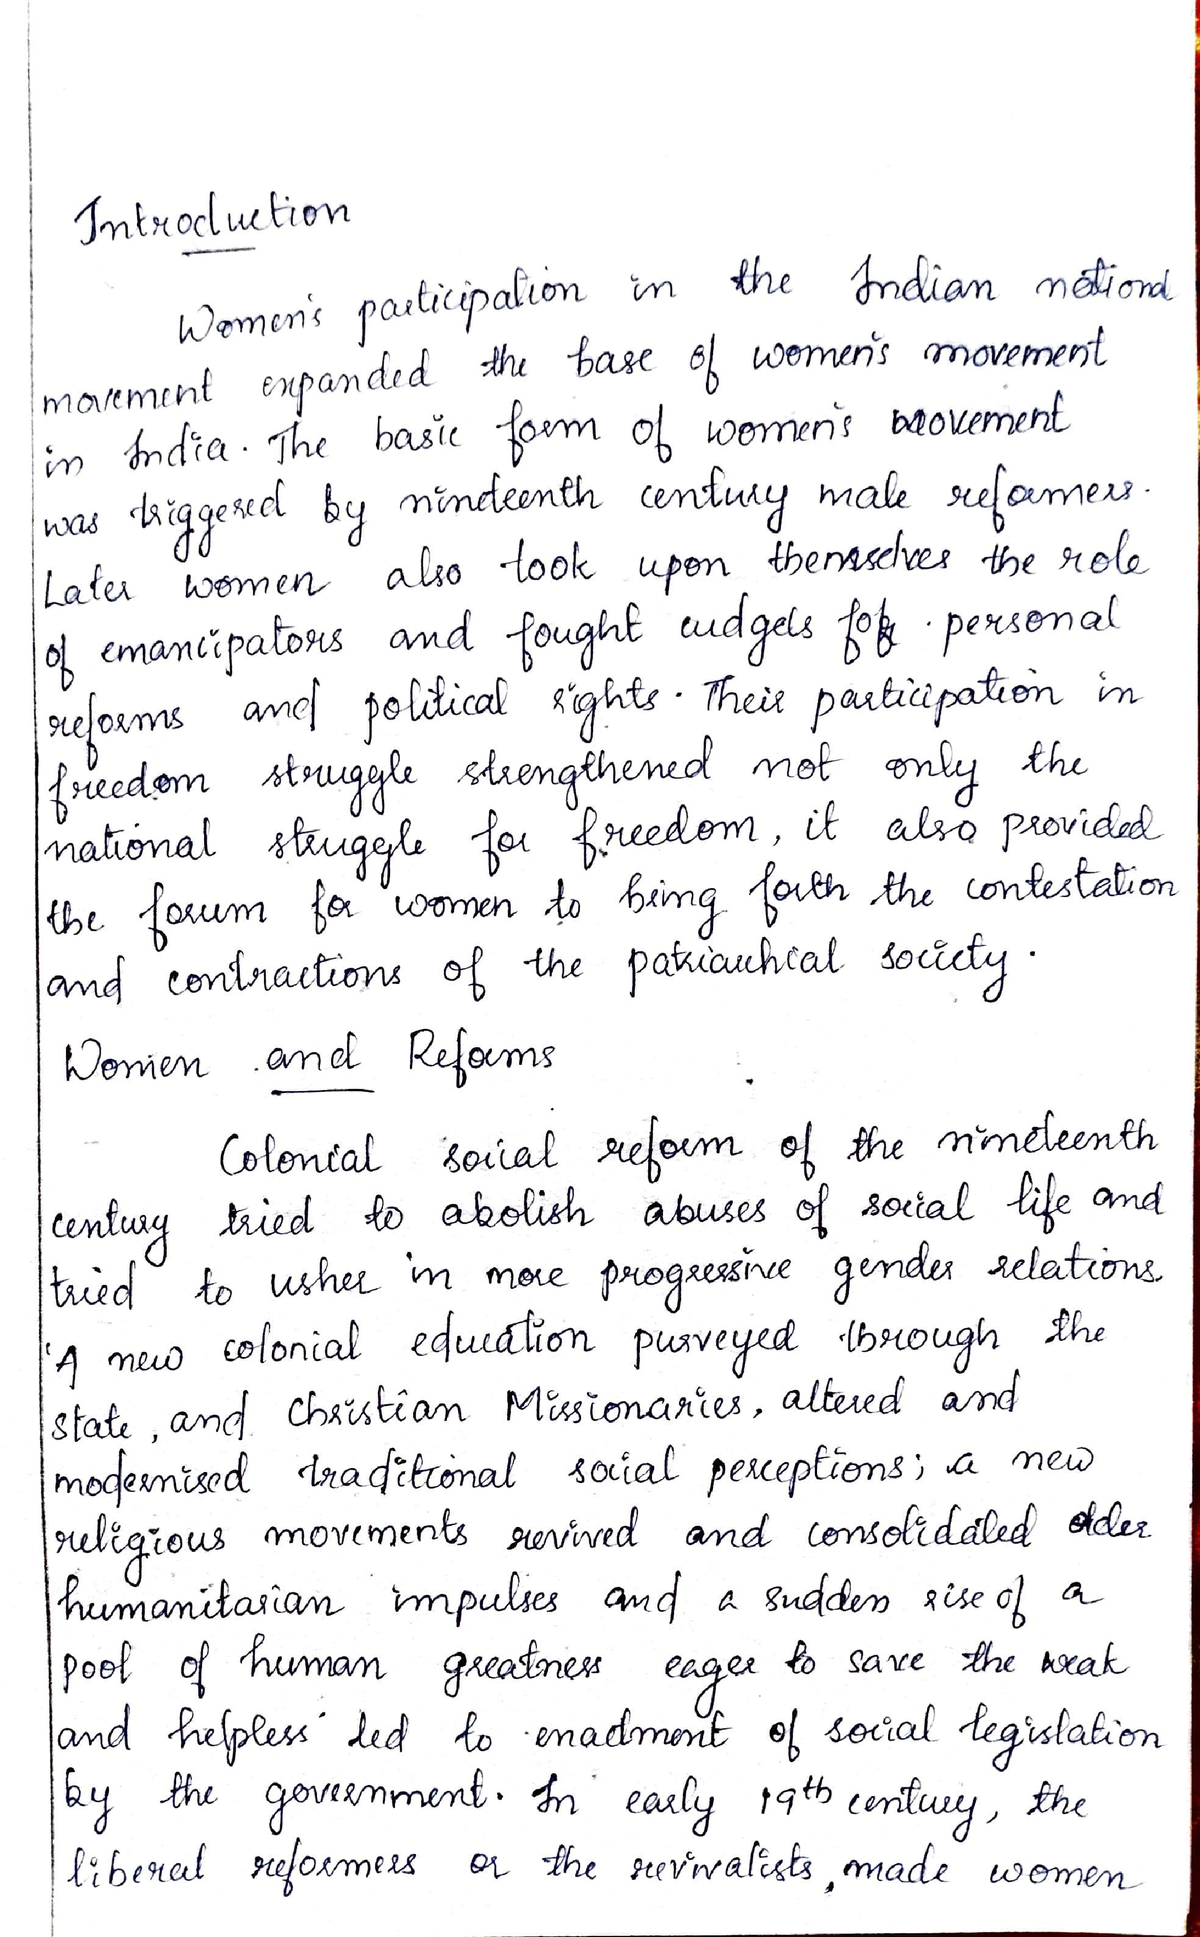 Introduction
Women's participation in the Indian national
movement expanded the base of women's movement
in India. The basic form of women's movement
was triggered by nineteenth century male reformers.
Later women also took upon themselves the role
of emancipators and fought cudgels for personal
reforms and political rights. Their participation in
freedom struggle strengthened not only the
national struggle for freedom, it also provided
the forum for women to bring forth the contestation
and contractions of the patriarchical society.
Women and Reforms
Colonial social reform of the nineteenth
century tried to abolish abuses of social life and
tried to usher in more progressive gender relations.
'A new colonial education purveyed through the
state, and Christian Missionaries, altered and
modernised traditional social perceptions; a new
religious movements revived and consolidated older
humanitarian impulses and a sudden rise of a
pool of human greatness eager to save the weak
and helpless' led to enactment of social legislation
by the government. In early 19th century, the
liberal reformers or the revivalists, made women